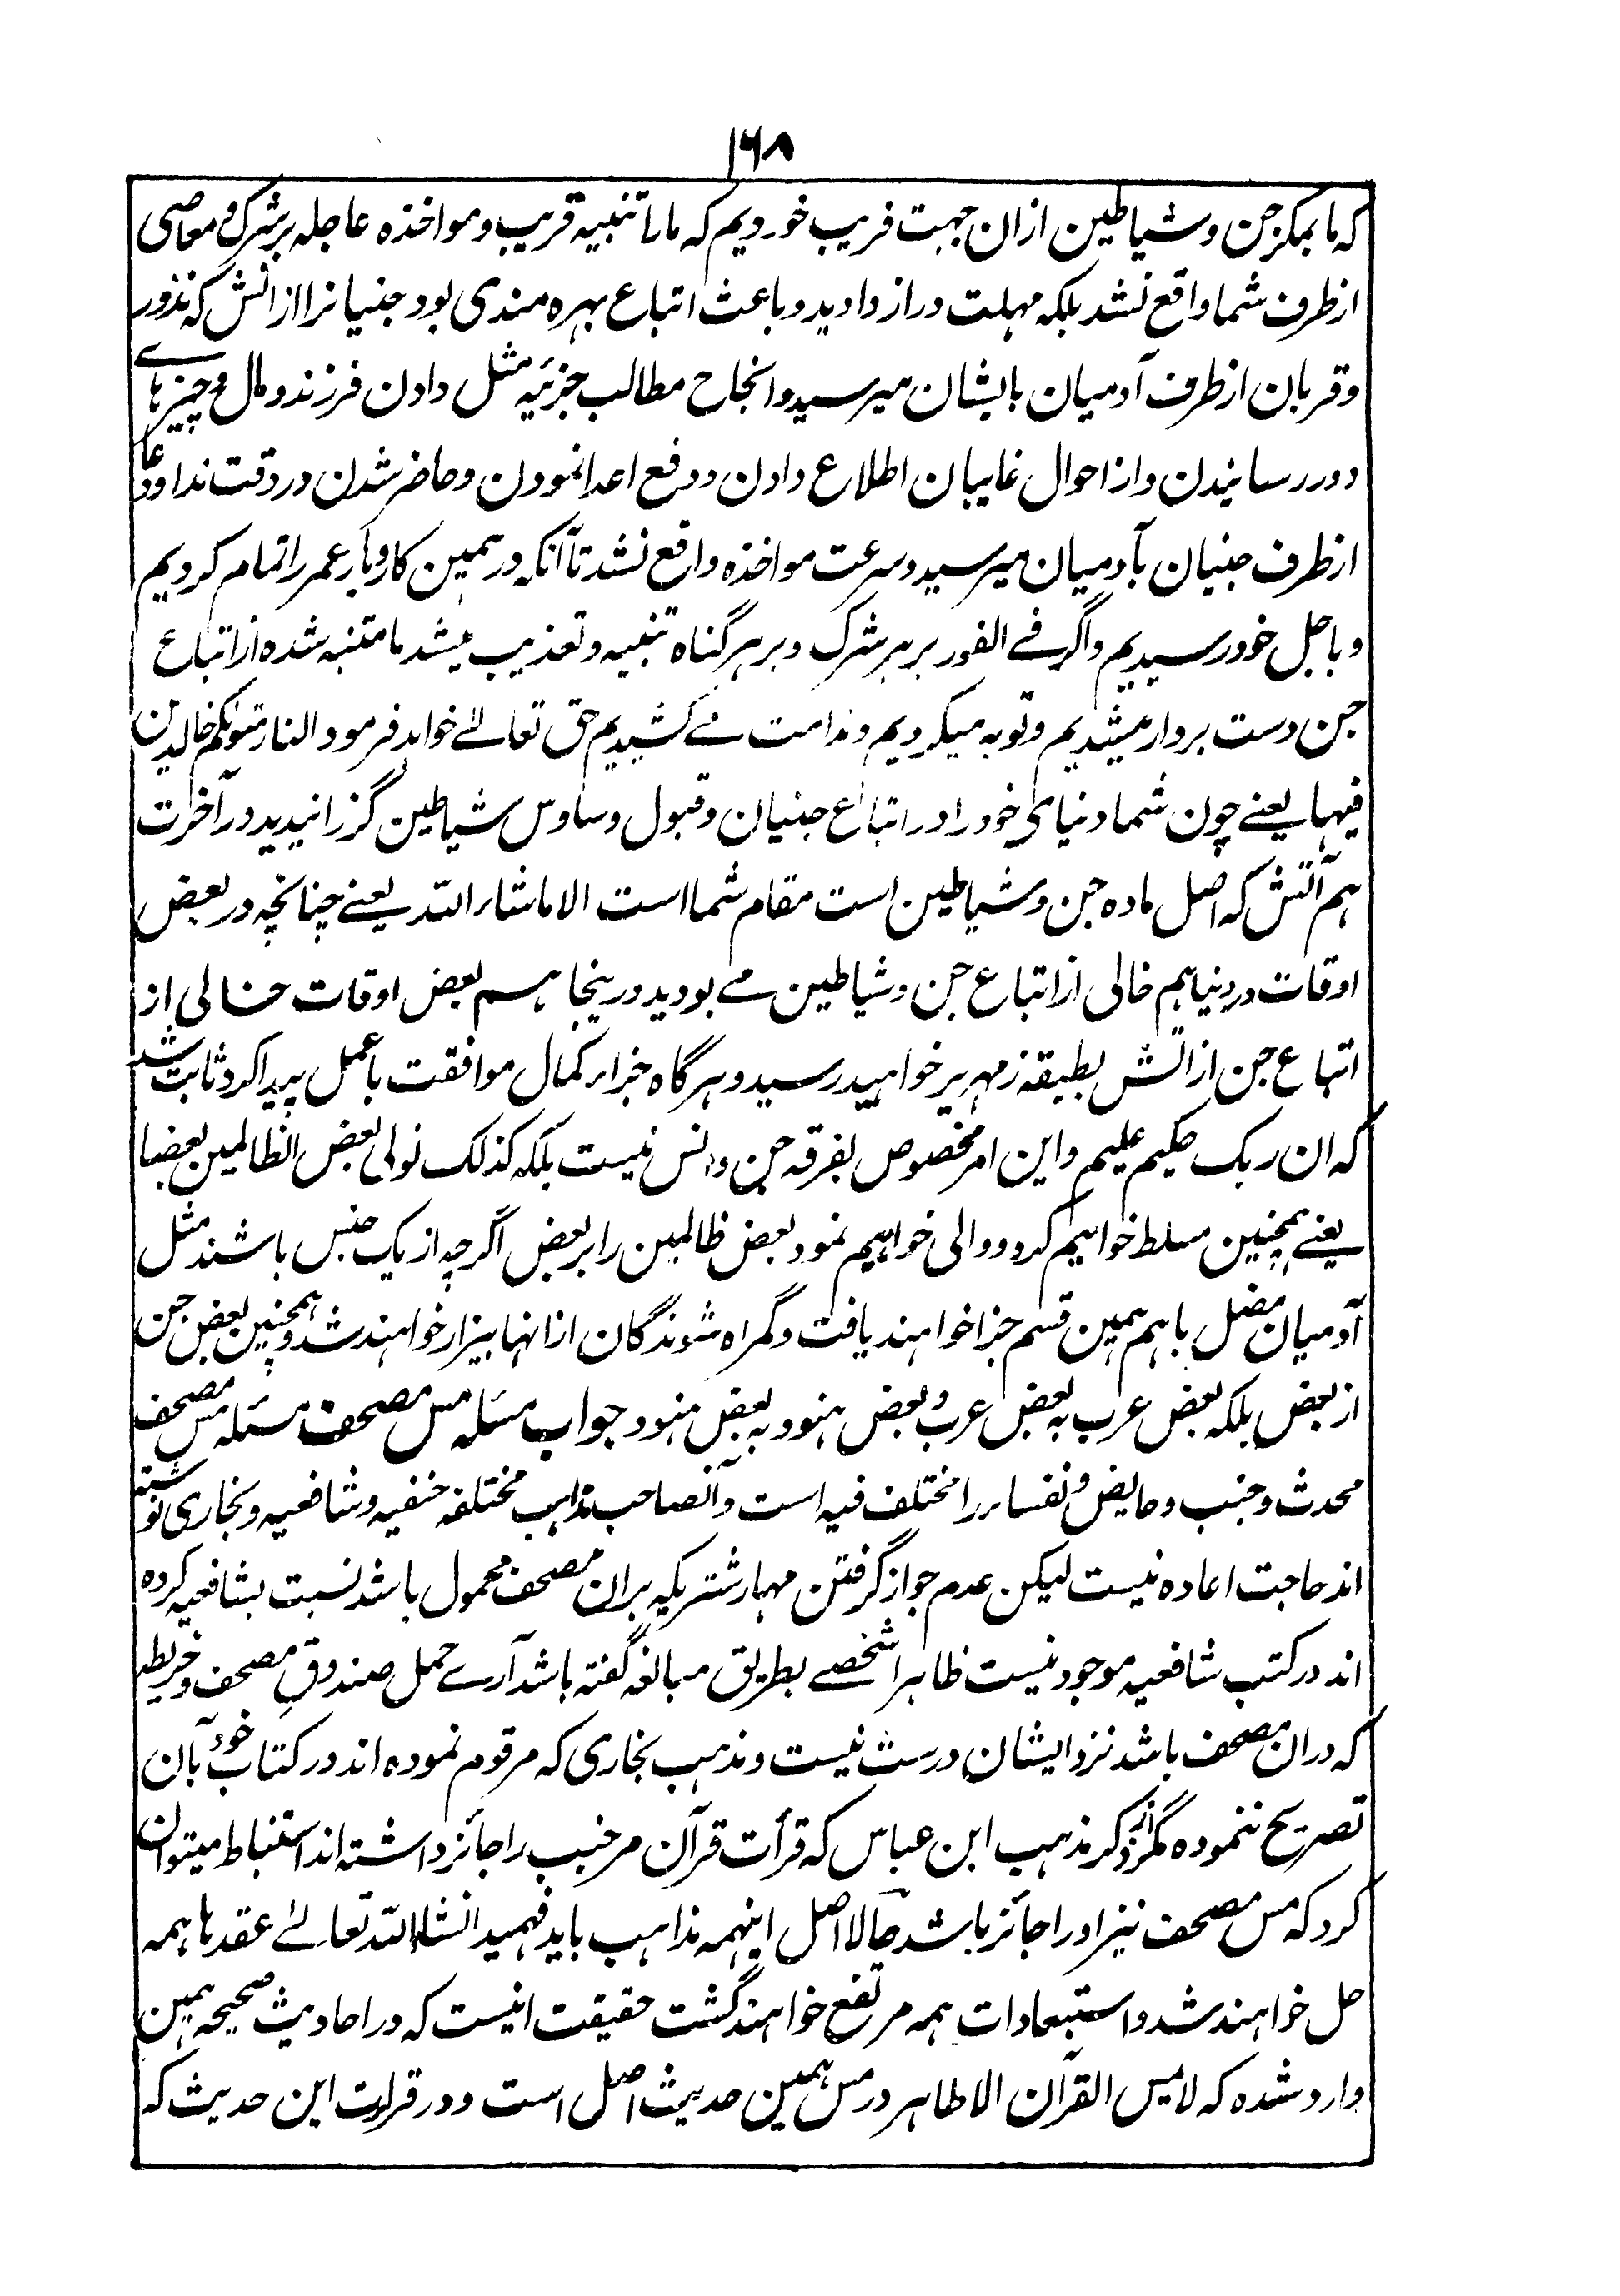 ۱۶۸
که ما بمکر جن و شیاطین ازان جهت فریب خوردیم که ما را تنبیه قریب و مواخذه عاجله بر شرک و معاصی
از طرف شما واقع نشد بلکه مهلت دراز دادید و باعث اتباع بهره مندی بود جنیانرا از انس که نذور
و قربان از طرف آدمیان بایشان میرسید و انجاح مطالب جزئیه مثل دادن فرزند و مال و چیزهاے
دور رسانیدن و از احوال غایبان اطلاع دادن و دفع اعدا نمودن و حاضر شدن در وقت ندا و دعا
از طرف جنیان بآدمیان میرسید و سرعت مواخذه واقع نشد تا آنکه در همین کاروبار عمر را تمام کردیم
و باجل خود رسیدیم و اگر فے الفور بر هر شرک و بر هر گناه تنبیه و تعذیب میشد ما متنبه شده از اتباع
جن دست بردار میشدیم و توبه میکردیم و ندامت مے کشیدیم حق تعالےٰ خواهد فرمود النار مثوٰلکم خالدین
فیها یعنے چون شما دنیای خود را در اتباع جنیان و قبول وساوس شیاطین گزرانیدید در آخرت
هم آتش که اصل ماده جن و شیاطین است مقام شما است الا ماشاء الله یعنے چنانچه در بعض
اوقات در دنیا هم خالی از اتباع جن و شیاطین مے بودید در ینجا هم بعض اوقات خالی از
اتباع جن از آتش بطبقه زمهریر خواهید رسید و هرگاه جزاء کمال موافقت با عمل پیدا کرد ثابت شد
که ان ربک حکیم علیم و این امر مخصوص بفرقه جن و انس نیست بلکه کذلک نولی بعض الظالمین بعضا
یعنے همچنین مسلط خواهیم کرد و والی خواهیم نمود بعض ظالمین را بر بعض اگرچه از یک جنس باشند مثل
آدمیان مضل باهم همین قسم جزا خواهند یافت و گمراه شوندگان ازانها بیزار خواهند شد و همچنین بعض جن
از بعض بلکه بعض عرب به بعض عرب و بعض هنود به بعض هنود جواب مسئله مس مصحف مسئله مس مصحف
محدث و جنب و حایض و نفساء را مختلف فیه است و آنصاحب مذاهب مختلفه حنفیه و شافعیه و بخاری نوشته
اند حاجت اعاده نیست لیکن عدم جواز گرفتن مهار شتریکه بران مصحف محمول باشد نسبت بشافعیه کرده
اند در کتب شافعیه موجود نیست ظاهرا شخصے بطریق مبالغه گفته باشد آرے حمل صندوقِ مصحف و خریطه
که دران مصحف باشد نزد ایشان درست نیست و مذهب بخاری که مرقوم نموده اند در کتاب خود بآن
تصریح ننموده مگر از ذکر مذهب ابن عباس که قرأت قرآن مر جنب را جائز داشته اند استنباط میتوان
کرد که مس مصحف نیز او را جائز باشد حالا اصل اینهمه مذاهب باید فهمید انشاء الله تعالےٰ عقدها همه
حل خواهند شد و استبعادات همه مرتفع خواهند گشت حقیقت اینست که در احادیث صحیحه همین
وارد شده که لا یمس القرآن الا طاهر در مس همین حدیث اصل است و در قراءت این حدیث که